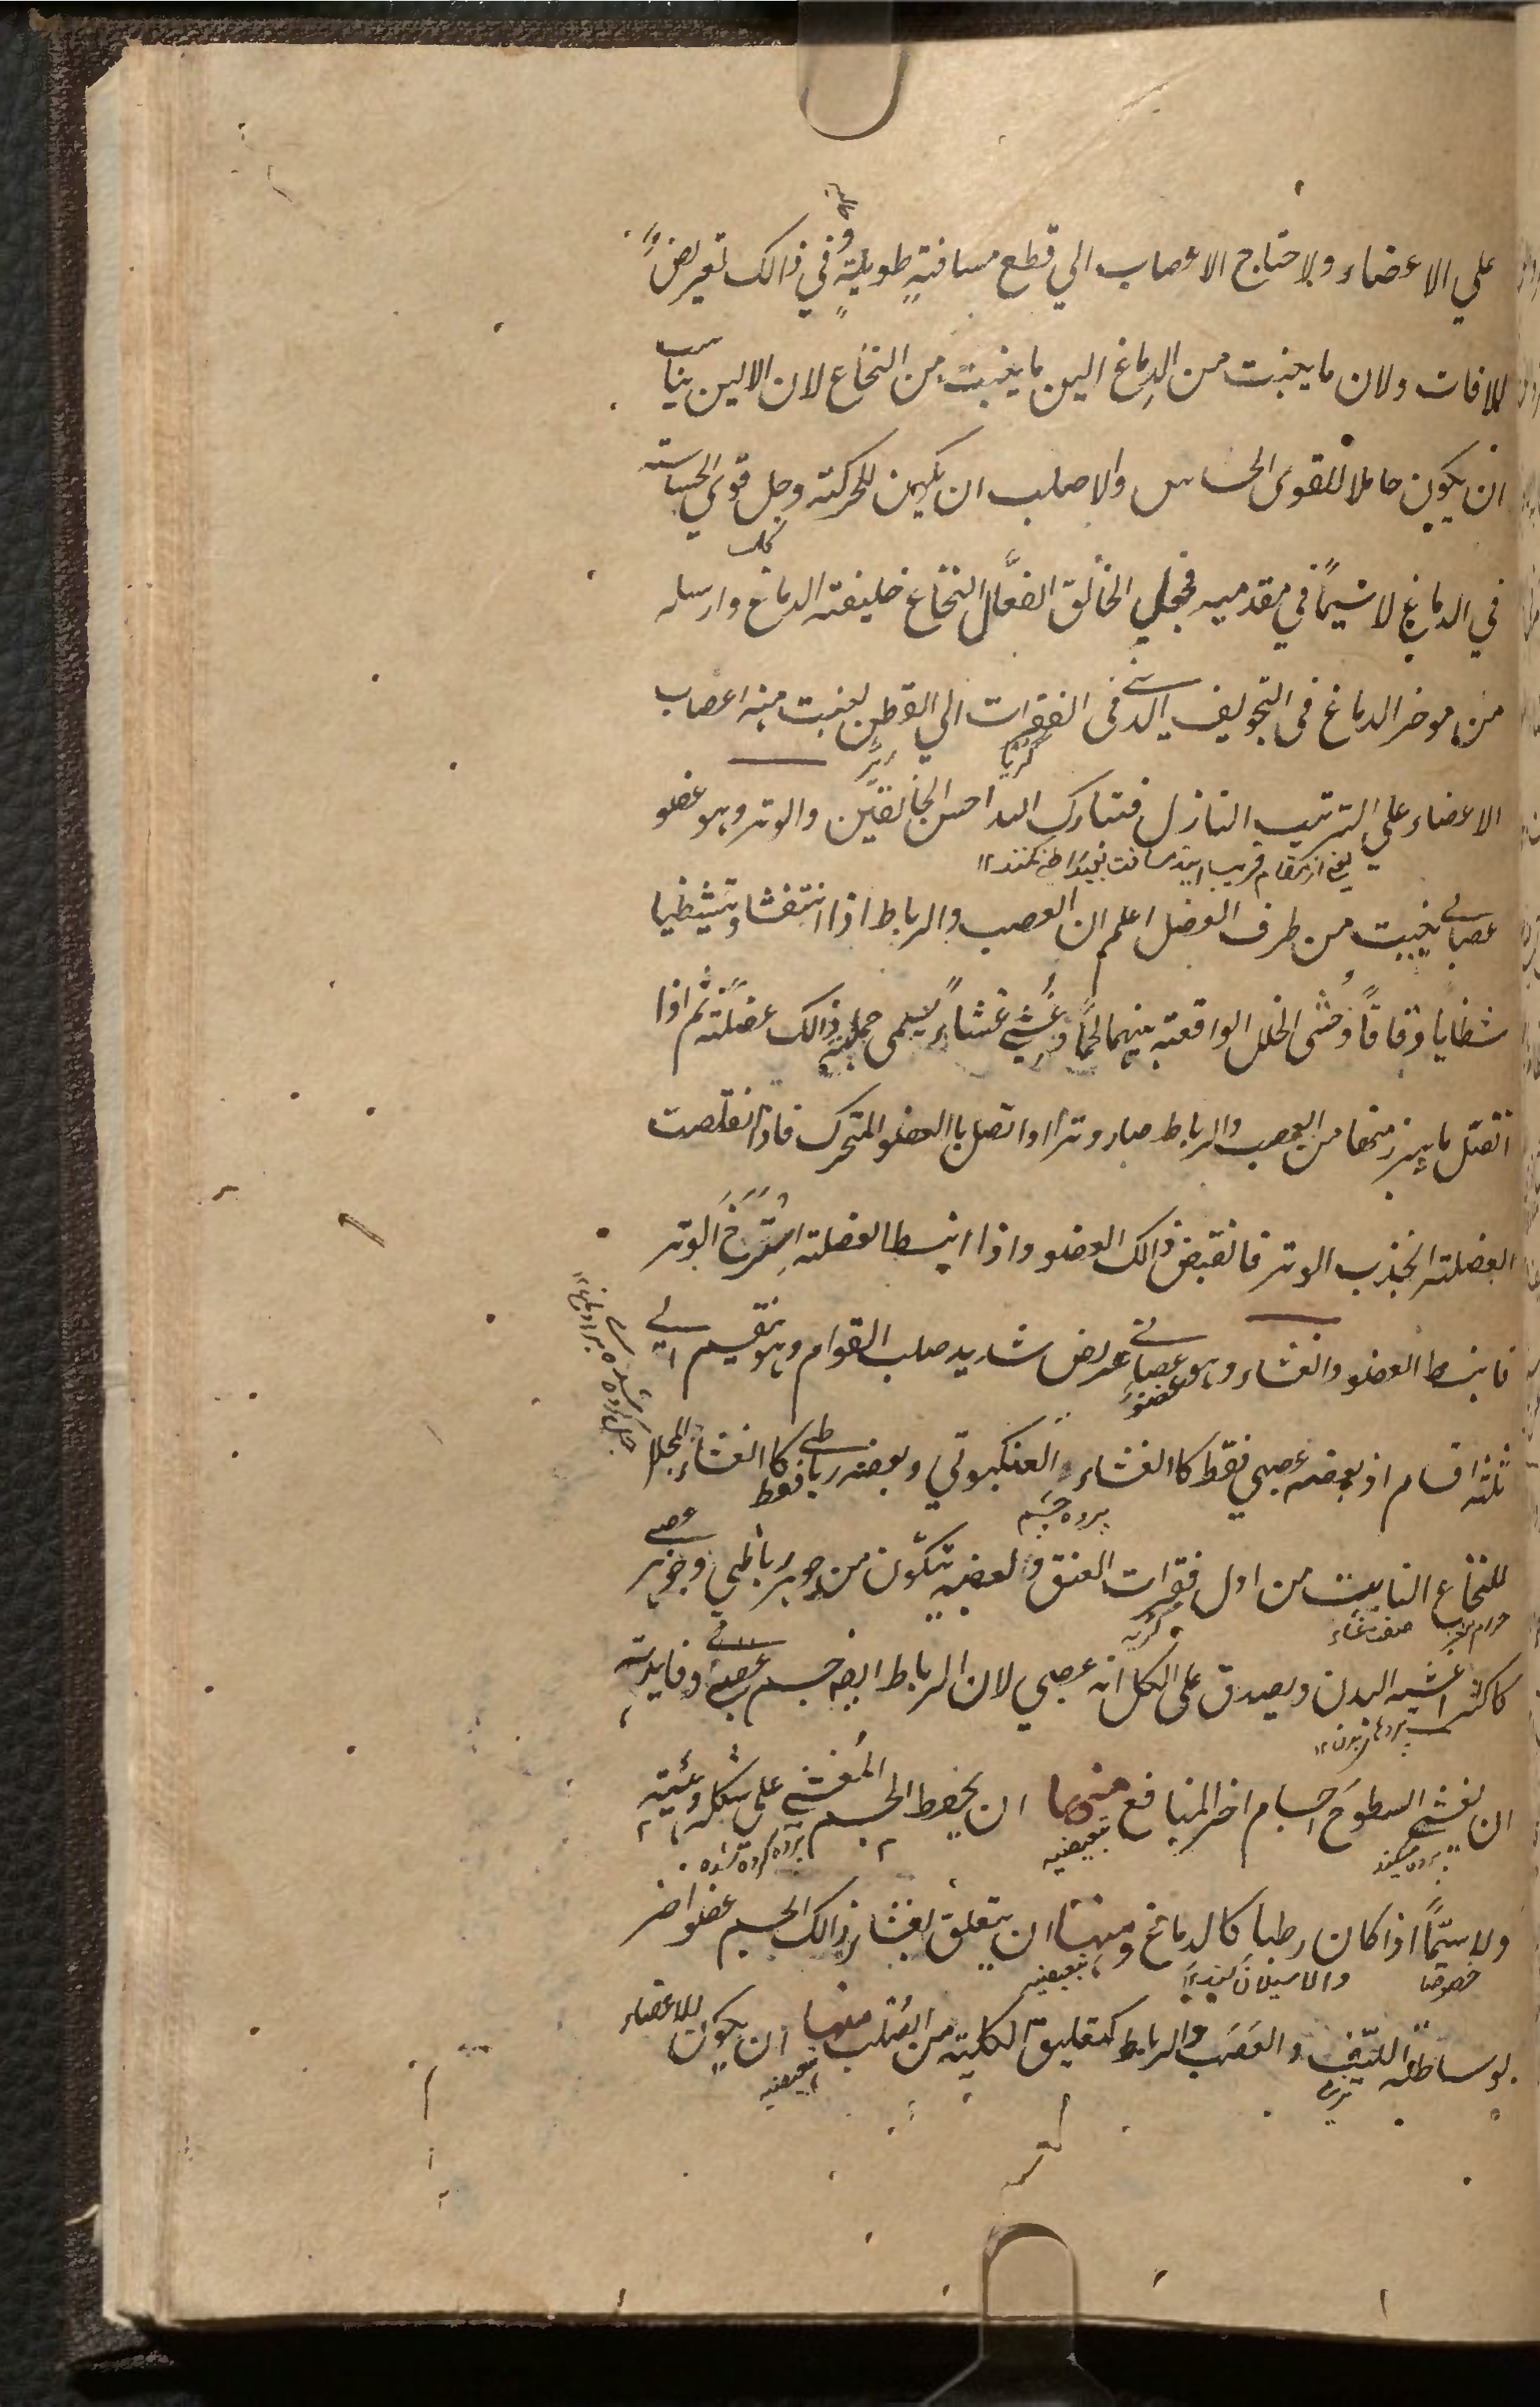 علي الاعضاء ولاحتاج الاعصاب الي قطع مسافتهٍ طويلتهٍ وفي ذالك تعريضٌ
للافات ولان ما ينبت من الدِماغ الين ما ينبت من النخاع لان الالين يناسب
ان يكون حاملا للقوى الحساس والاصلب ان يكون للحركته وجل قوي الحساسته
في الدماغ لاسيّماً في مقدميه فجعل الخالق الفعّال النخاع خليفته الدماغ وارسله
من موخر الدماغ في التجويف الذي في الفقرات الي القطن لينبت منه اعصاب
الاعضاء علي الترتيب النازل فتبارك الله احسن الخالقين والوتر وهو عضو
يعني از مقام قريب
عصباني ينبت من طرف العضل اعلم ان العصب والرباط اذا انتفشا وتشظيا
شظايا دقاقاً وحُشى الخلل الواقعته بينهما لحماً وغُشي غشاءً يسمى جملته ذالك عضلته ثم اذا
اتصل ما يبرز منها من العصب والرباط صار وترا واتصل باالعضو المتحرك فاذا تقلصت
العضلته انجذب الوتر فانقبض ذالك العضو واذا انبسط العضلته استرخ الوتر
فانبسط العضو والغشاء وهو عضو عصباني عريض شديد صلب القوام وهو ينقسم الي
ثلثه اقسام اذ بعضه عصبي فقط كاالغشاء العنكبوتي وبعضه رباطي فقط كاالغشاء المجلل
پرده چشم
للنخاع النابت من اول فقرات العنق وبعضه يتكوّن من جوهر رباطي وجوهر عصبي
صفت غشاء
كاكثر اغشيه البدن ويصدق على الكل انه عصبي لان الرباط ايضه جسم عصباني وفايدته
ان يغشي السطوح اجسام اخر المنافع منها ان يحفظ الجسم المُغشي على شكله وهيئته
پرده ميكند
تبعيضيه
پرده كرده شده
ولاسيّماً اذا كان رطبا كالدماغ ومنها ان يتعلق بغشاء ذالك الجسم عضو اخر
خصوصا
تبعيضيه
بوساطته الليف والعَصَب والرباط كتعليق الكليته من الصُلب منها ان يكون للاعضاء
تبعيضيه